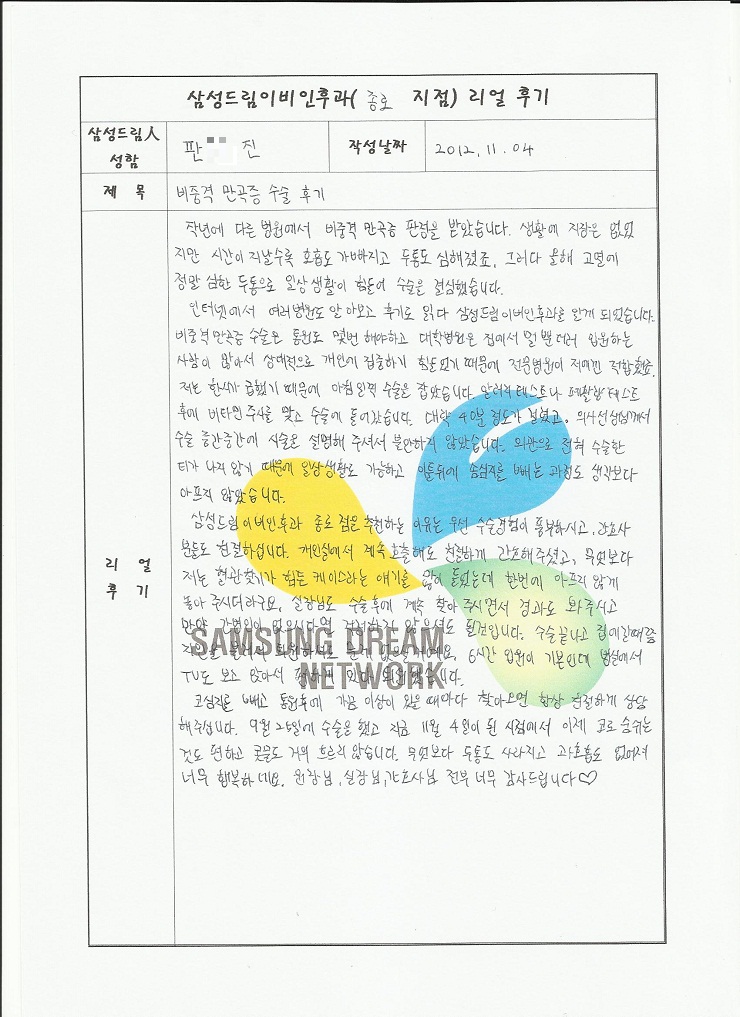 삼성드림이비인후과( 종로 지점) 리얼 후기
삼성드림人 성함
판 진
작성날짜
2012. 11. 04
제 목
비중격 만곡증 수술 후기
리 얼
후 기
작년에 다른 병원에서 비중격 만곡증 판정을 받았습니다. 생활에 지장은 없었
지만 시간이 지날수록 호흡도 가빠지고 두통도 심해졌죠. 그러다 올해 고열에
정말 심한 두통으로 일상생활이 힘들어 수술을 결심했습니다.
인터넷에서 여러병원도 알아보고 후기도 읽다 삼성드림이비인후과를 알게 되었습니다.
비중격 만곡증 수술은 통원도 몇번 해야하고 대학병원은 집에서 멀 뿐더러 입원하는
사람이 많아서 상대적으로 개인에 집중하기 힘들었기 때문에 전문병원이 저에겐 적합했죠.
저는 한시가 급했기 때문에 아침일찍 수술을 잡았습니다 알러지 테스트나 폐활량 테스트
후에 비타민 주사를 맞고 수술에 들어갔습니다. 대략 40분 정도가 걸렸고. 의사선생님께서
수술 중간중간에 시술은 설명해 주셔서 불안하지 않았습니다. 외관으로 전혀 수술한
티가 나지 않기 때문에 일상생활도 가능하고 이틀뒤에 솜심지를 빼는 과정도 생각보다
아프지 않았습니다.
삼성드림이비인후과 종로 점은 추천하는 이유는 우선 수술경험이 풍부하시고, 간호사
분들도 친절하십니다. 개인실에서 계속 호출해도 친절하게 간호해주셨고, 무엇보다
저는 혈관찾기가 힘든 케이스라는 얘기를 많이 들었는데 한번에 아프지 않게
놓아 주시더라구요. 실장님도 수술후에 계속 찾아 주시면서 경과도 봐주시고
만약 간병인이 없으시다면 걱정하지 않으셔도 될것입니다. 수술끝나고 집에갈때쯤
6시간 입원이 기본인데 병실에서
TV도 보고 앉아서 편하게 있다 퇴원했습니다.
코심지를 빼고 통원후에 가끔 이상이 있을 때마다 찾아오면 항상 친절하게 상담
해주십니다. 9월 25일에 수술을 했고 지금 11월 4일이 된 시점에서 이제 코로 숨쉬는
것도 편하고 콧물도 거의 흐르지 않습니다. 무엇보다 두통도 사라지고 과호흡도 없어져
너무 행복하네요. 원장님, 실장님, 간호사님 전부 너무 감사드립니다♡
SAMSUNG DREAM
NETWORK